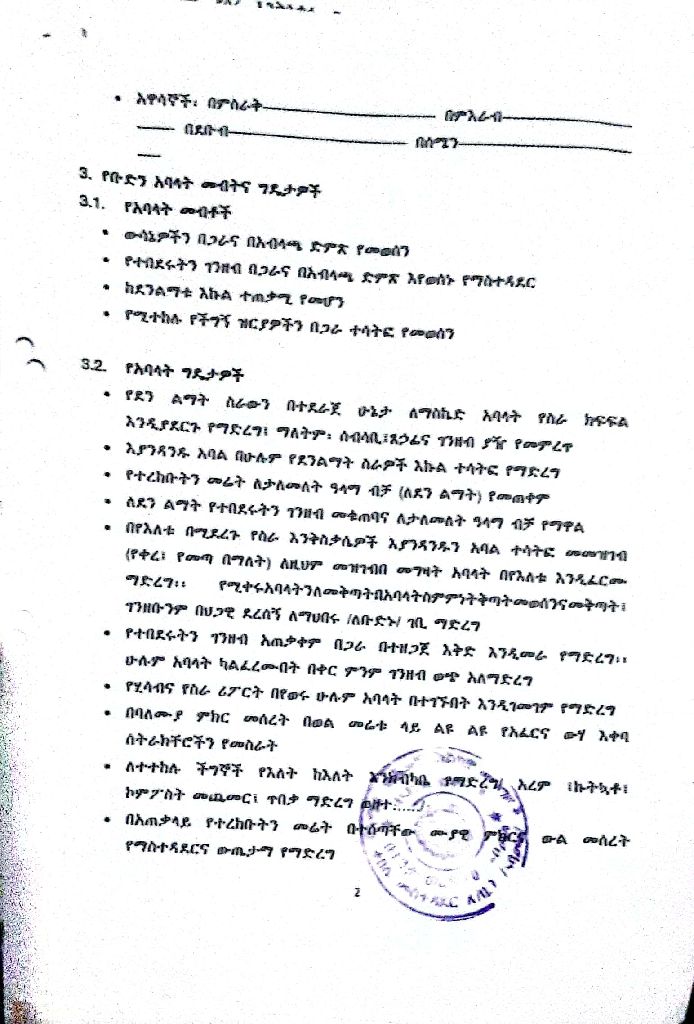 • አዋሳኞች፡ በምስራቅ በምእራብ
በደቡብ በሰሜን
3. የቡድን አባላት መብትና ግዴታዎች
3.1. የአባላት መብቶች
• ውሳኔዎችን በጋራና በአብላጫ ድምጽ የመወሰን
• የተበደሩትን ገንዘብ በጋራና በአብላጫ ድምጽ እየወሰኑ የማስተዳደር
• ከደንልማቱ እኩል ተጠቃሚ የመሆን
• የሚተከሉ የችግኝ ዝርያዎችን በጋራ ተሳትፎ የመወሰን
3.2. የአባላት ግዴታዎች
• የደን ልማት ስራውን በተደራጀ ሁኔታ ለማስኬድ አባላት የስራ ክፍፍል
እንዲያደርጉ የማድረግ፤ ማለትም፡ ሰብሳቢ፤ጸኃፊና ገንዘብ ያዥ የመምረጥ
• እያንዳንዱ አባል በሁሉም የደንልማት ስራዎች እኩል ተሳትፎ የማድረግ
• የተረከቡትን መሬት ለታለመለት ዓላማ ብቻ (ለደን ልማት) የመጠቀም
• ለደን ልማት የተበደሩትን ገንዘብ መቁጠባና ለታለመለት ዓላማ ብቻ የማዋል
• በየእለቱ በሚደረጉ የስራ እንቅስቃሴዎች እያንዳንዱን አባል ተሳትፎ መመዝገብ
(የቀረ፤ የመጣ በማለት) ለዚህም መዝገብበ መግዛት አባላት በየእለቱ እንዲፈርሙ
ማድረግ፡፡ የሚቀሩአባላትንለመቅጣትበአባላትስምምነትቅጣትመወሰንናመቅጣት፤
ገንዘቡንም በህጋዊ ደረሰኝ ለማህበሩ /ለቡድኑ/ ገቢ ማድረግ
• የተበደሩትን ገንዘብ አጠቃቀም በጋራ በተዘጋጀ እቅድ እንዲመራ የማድረግ፡፡
ሁሉም አባላት ካልፈረሙበት በቀር ምንም ገንዘብ ወጭ አለማድረግ
• የሂሳብና የስራ ሪፖርት በየወሩ ሁሉም አባላት በተገኙበት እንዲገመገም የማድረግ
• በባለሙያ ምክር መሰረት በወል መሬቱ ላይ ልዩ ልዩ የአፈርና ውሃ እቀባ
ስትራክቸሮችን የመስራት
• ለተተከሉ ችግኞች የእለት ከእለት እንክብካቤ የማድረግ/ አረም ፤ኩትኳቶ፤
ኮምፖስት መጨመር፤ ጥበቃ ማድረግ ወዘተ....../
• በአጠቃላይ የተረከቡትን መሬት በተሰጣቸው ሙያዊ ምክርና ውል መሰረት
የማስተዳደርና ውጤታማ የማድረግ
2